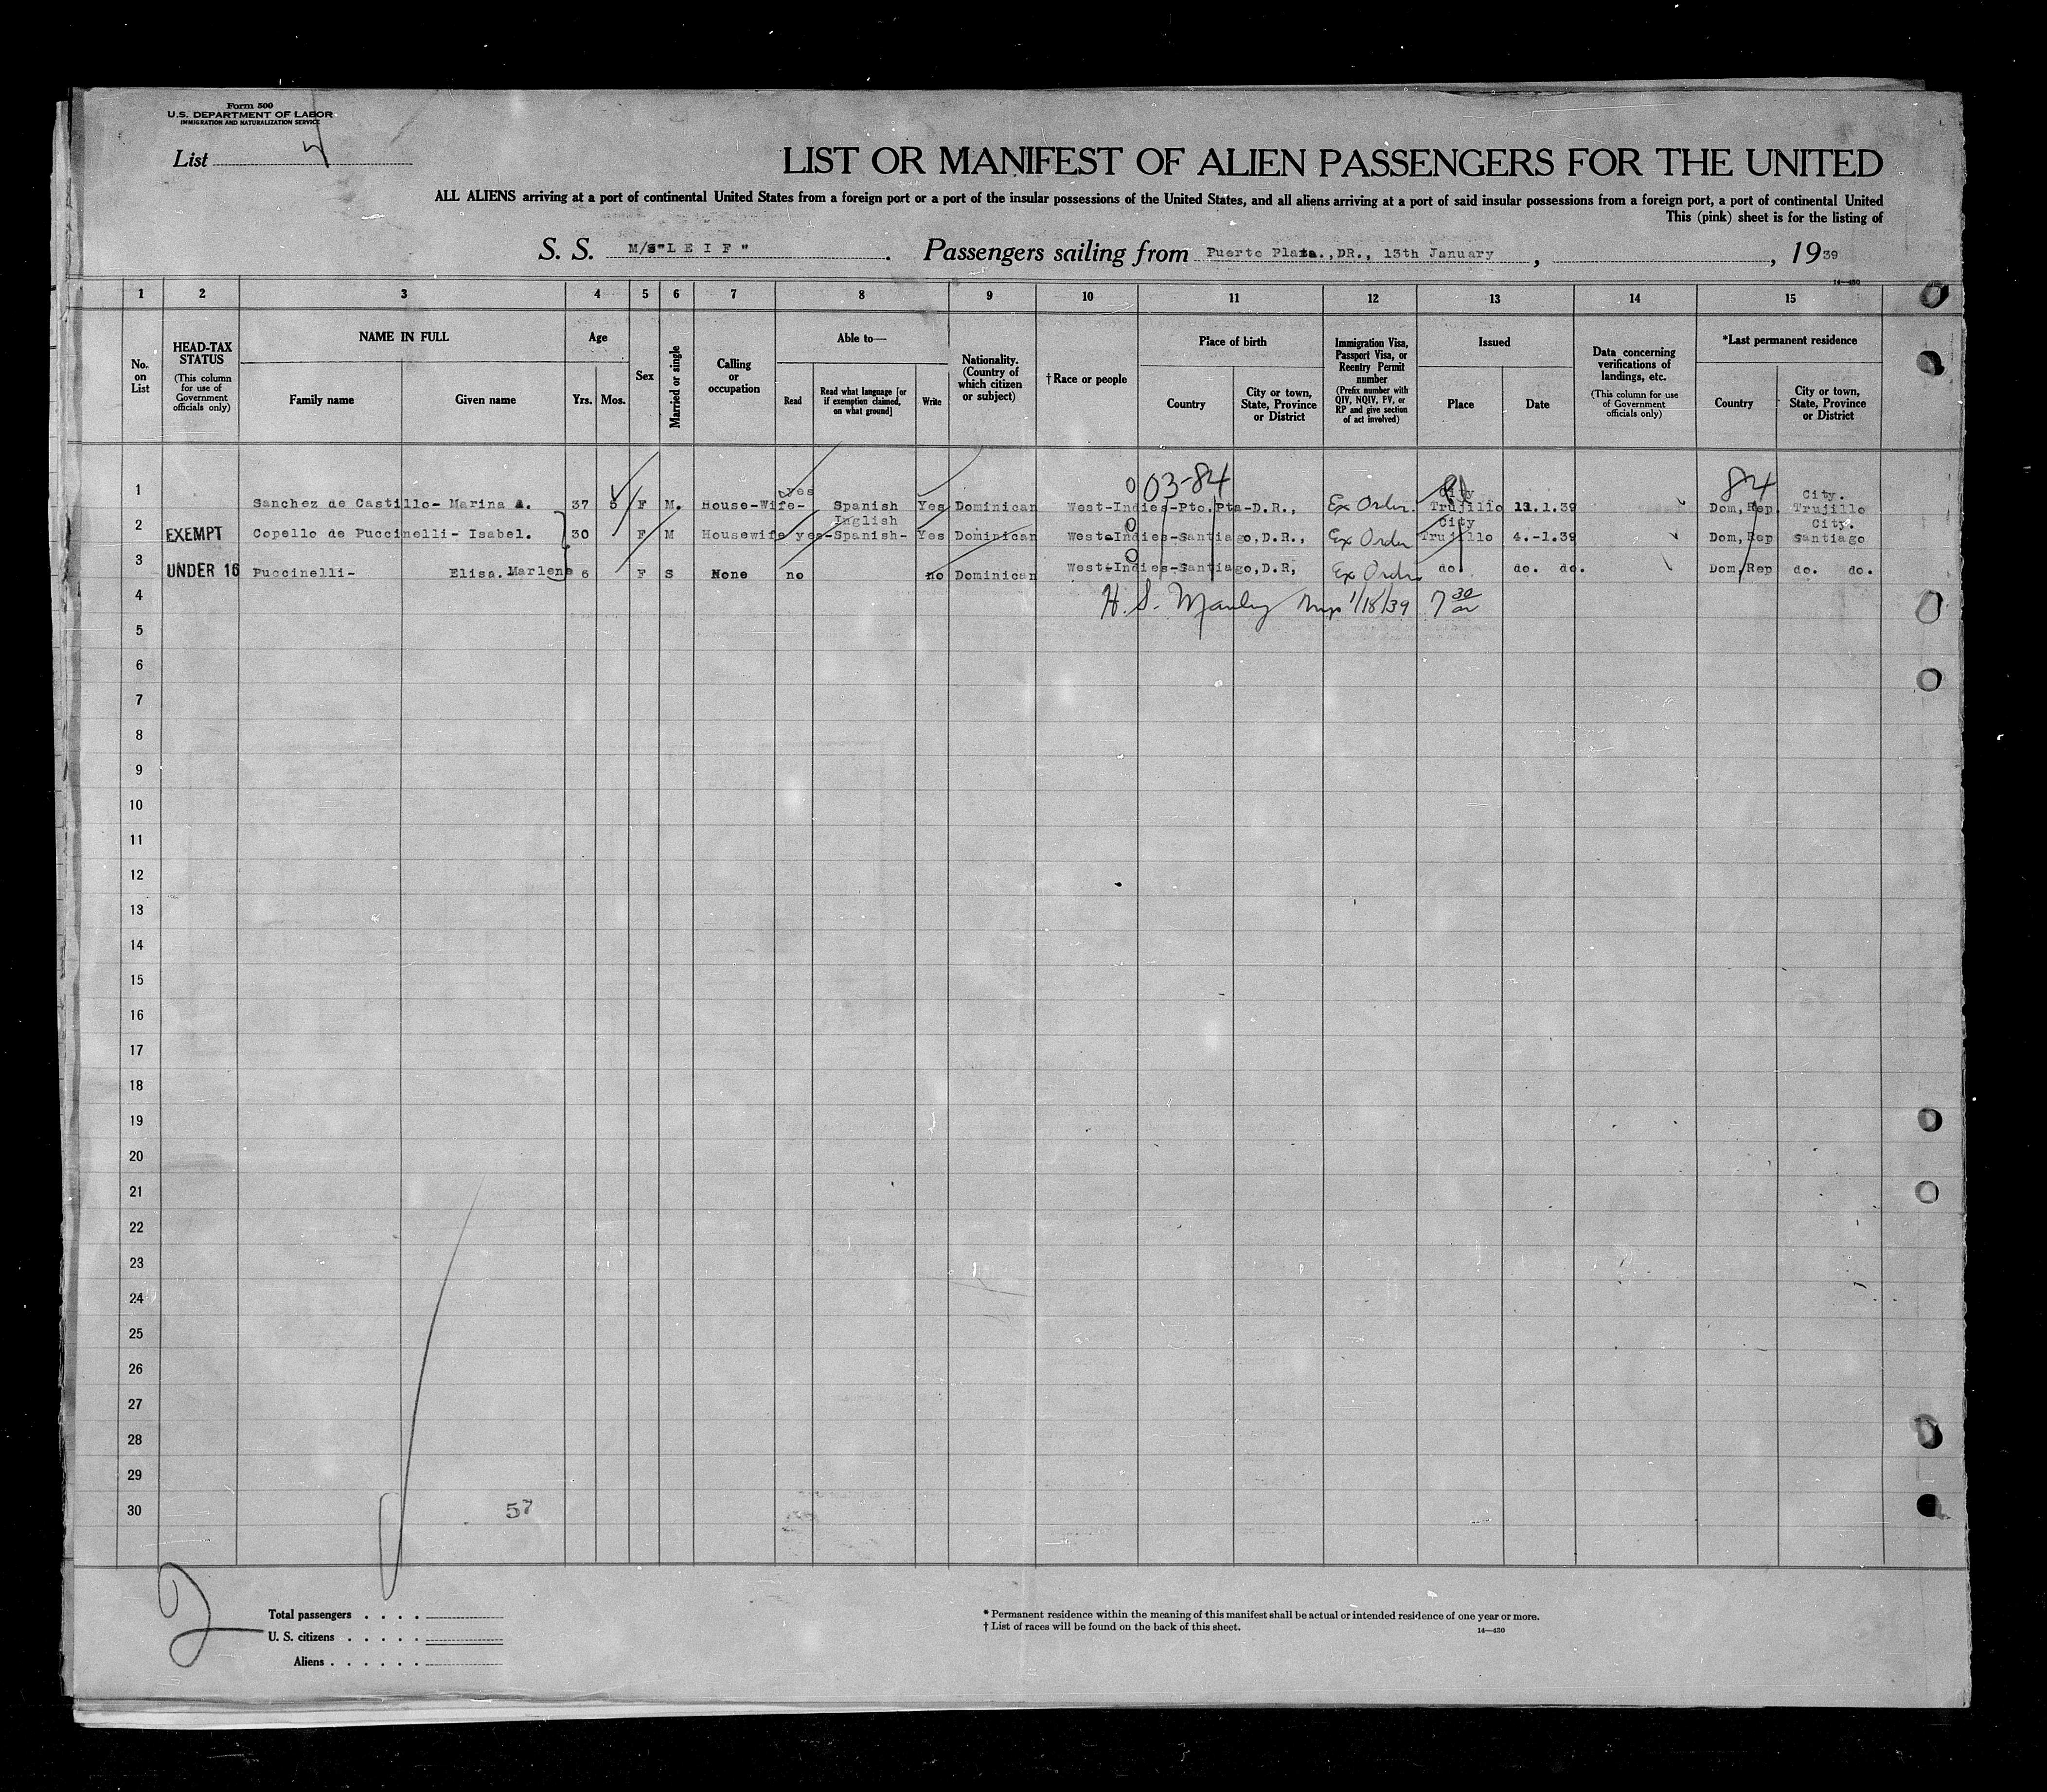 Form 500
U.S. DEPARTMENT OF LABOR
IMMIGRATION AND NATURALIZATION SERVICE
List 4
LIST OR MANIFEST OF ALIEN PASSENGERS FOR THE UNITED
ALL ALIENS arriving at a port of continental United States from a foreign port or a port of the insular possessions of the United States, and all aliens arriving at a port of said insular possessions from a foreign port, a port of continental United
This (pink) sheet is for the listing of
S. S. M/S"L E I F" . Passengers sailing from Puerto Plata.,DR., 13th January , , 1939
14—430
1 2 3 4 5 6 7 8 9 10 11 12 13 14 15
No. on List
HEAD-TAX STATUS (This column for use of Government officials only)
NAME IN FULL
Family name Given name
Age
Yrs. Mos.
Sex
Married or single
Calling or occupation
Able to—
Read Read what language [or if exemption claimed, on what ground] Write
Nationality. (Country of which citizen or subject)
†Race or people
Place of birth
Country City or town, State, Province or District
Immigration Visa, Passport Visa, or Reentry Permit number (Prefix number with QIV, NQIV, PV, or RP and give section of act involved)
Issued
Place Date
Data concerning verifications of landings, etc. (This column for use of Government officials only)
*Last permanent residence
Country City or town, State, Province or District
0 03-84 84
yes City City.
1 Sanchez de Castillo- Marina A. 37 5 F M. House-Wife- Spanish Yes Dominican West-Indies-Pto.Pta-D.R., Ex Order. Trujillo 11.1.39 Dom,Rep. Trujillo
Inglish 0 City City.
2 EXEMPT Copello de Puccinelli- Isabel. 30 F M Housewife yes-Spanish- Yes Dominican West-Indies-Santiago,D.R., Ex Order Trujillo 4.-1.39 Dom,Rep Santiago
0
3 UNDER 16 Puccinelli- Elisa. Marlene 6 F S None no no Dominican West-Indies-Santiago,D.R, Ex Order do. do. do. Dom,Rep do. do.
4 H. S. Manley 1/18/39 7 30
5
6
7
8
9
10
11
12
13
14
15
16
17
18
19
20
21
22
23
24
25
26
27
28
29
30 57
2
Total passengers . . . .
U. S. citizens . . . . .
Aliens . . . . . .
* Permanent residence within the meaning of this manifest shall be actual or intended residence of one year or more.
† List of races will be found on the back of this sheet.
14—430